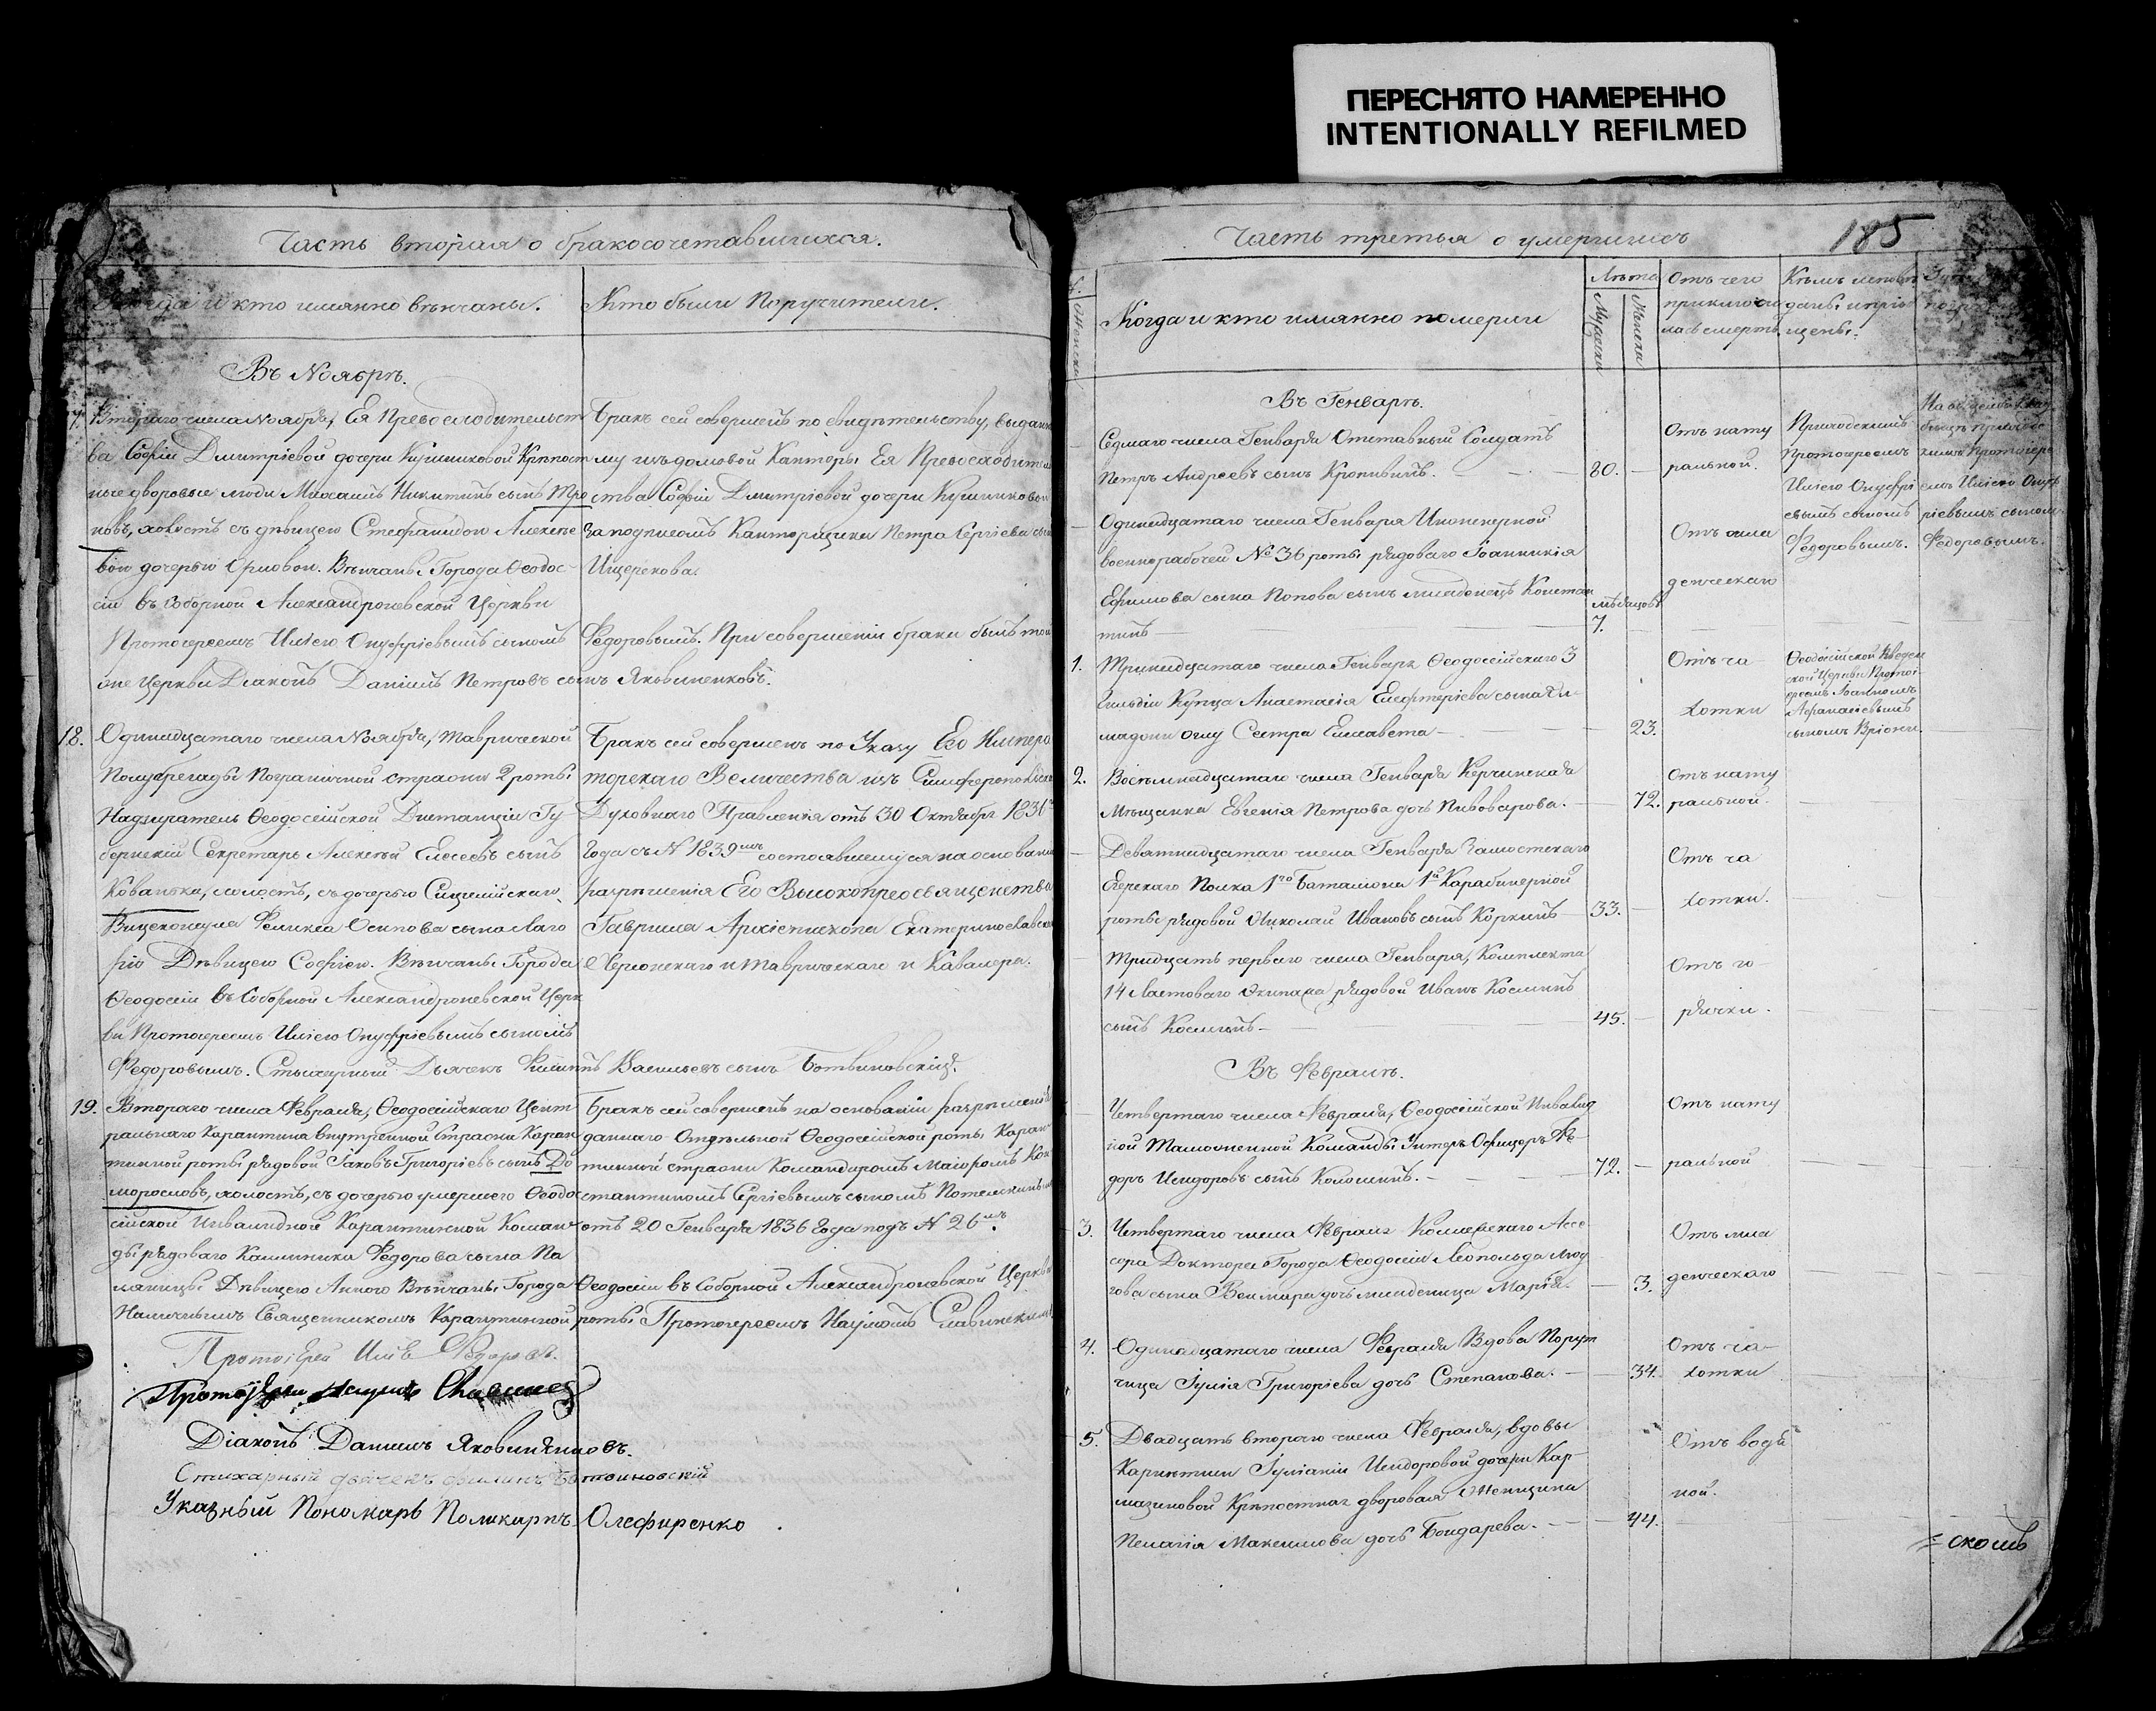 ПЕРЕСНЯТО НАМЕРЕННО
INTENTIONALLY REFILMED
Часть вторая о бракосочетавшихся.
и кто имянно вѣнчаны.
Кто были Поручители.
Въ Ноябрѣ.
Втораго числа Ноября, Ея Превосходительст
ва Софіи Дмитріевой дочери Кушниковой Крѣпост
ные дворовые люди Михаилъ Никитинъ сынъ Тро
новъ, холостъ съ дѣвицею Стефанидою Алексѣе
вою дочерью Орловою. Вѣнчаны Города Ѳеодос-
іи въ Соборной Александроневской Церкви
Протоіереемъ Иліею Онуфріевымъ сыномъ
Бракъ сей совершенъ по свидѣтельству, выданно
му изъ домовой Канторы Ея Превосходитель
ства Софіи Дмитріевой дочери Кушниковой
За подписомъ Канторщика Петра Сергіева сына
Ищерекова.
Федоровымъ. При совершеніи брака былъ той
оне Церкви Діаконъ Даніилъ Петровъ сынъ Яковиненковъ.
18. Одинадцатаго числа Ноября, Таврической
Полубрегады Пограничной стражи 2 роты
Надзиратель Ѳеодосійской Дистанціи Гу
бернскій Секретарь Алексѣй Елесеевъ сынъ
Кованька, холостъ, съ дочерью Сицилійскаго
Вицеконсула Феликса Осипова сына Лаго
ріо Дѣвицею Софіею. Вѣнчаны Города
Ѳеодосіи въ Соборной Александроневской Церк
ви Протоіереемъ Иліею Онуфріевымъ сыномъ
Бракъ сей совершенъ по Указу Его Импера
торскаго Величества изъ Симферопольскаго
Духовнаго Правленія отъ 30 Октября 1836
Года съ № 1839мъ состоявшемуся на основаніи
разрѣшенія Его Высокопреосвященства
Гавріила Архіепископа Екатеринославска
Херсонскаго и Таврическаго и Кавалера.
Федоровымъ. Стихарный Дьячекъ Филипъ Васильевъ сынъ Ботвиновскій.
19. Втораго числа Февраля, Ѳеодосійскаго Цент
ральнаго Карантина внутренной Стражи Каран
тинной роты рядовой Іаковъ Григоріевъ сынъ До
морословъ, холостъ, съ дочерью умершего Ѳеодо
сійской Инвалидной Карантинской Коман
ды рядоваго Калиника Федорова сына Па
ляницы Дѣвицею Анною Вѣнчаны Города
Наличнымъ Священникомъ Карантинной
Бракъ сей совершенъ на основаніи разрѣшенія
даннаго Отдѣльной Ѳеодосійской роты Каран
тинной стражи Командиромъ Маіоромъ Кон
стантиномъ Сергіевымъ сыномъ Потемкинымъ
отъ 20 Генваря 1836 Года подъ № 26мъ.
Ѳеодосіи въ Соборной Александроневской Церкви
роты Протоіереемъ Наумомъ Славинскимъ
Протоіерей Илія Федоровъ.
Протоіерей Наумъ
Діаконъ Даніилъ Яковинянковъ.
Стихарный дьячекъ Филипъ Ботвиновскій
Указный Пономарь Поликарпъ Олефиренко
Часть третья о умершихъ
185
Когда и кто имянно померли
Лѣта
Мужеска
Женска
Отъ чего
приключи
лась смерть.
Кѣмъ исповѣ
даны и пріо
щены.
Въ Генварѣ.
Седмаго числа Генваря Отставный Солдатъ
Петръ Андреевъ сынъ Кропивинъ.
80.
Отъ нату
ральной.
Приходскимъ
Протоіереемъ
Иліею Онуфрі
евымъ сыномъ
Федоровымъ.
химъ Протоіере
емъ Иліею Онуф
ріевымъ сыномъ
Федоровымъ.
Одинадцатаго числа Генваря Инженерной
военнорабочей № 36 роты рядоваго Іоанникія
Ефимова сына Попова сынъ младенецъ Констан
тинъ
мѣсяцовъ
7.
Отъ мла
денческаго
1. Тринадцатаго числа Генваря Ѳеодосійскаго 3
Гильдіи Купца Анастасія Елефтеріева сына
Сестра Елисавета
23.
Отъ ча
хотки
Ѳеодосійской Введен
ской Церкви Протоі
ереемъ Іоанномъ
Афанасіевымъ
сыномъ Вріони.
2. Восемнадцатаго числа Генваря Керчинская
Мѣщанка Евгенія Петрова дочь Пивоварова.
72.
Отъ нату
ральной.
Девятнадцатаго числа Генваря Замостскаго
Егерскаго Полка 1го Баталіона 1й Карабинерной
роты рядовой Николай Ивановъ сынъ Коркинъ
33.
Отъ ча
хотки.
Тридцать перваго числа Генваря, Комплекта
14 Ластоваго Экипажа рядовой Иванъ Косминъ
сынъ Косминъ
45.
Отъ го
рячки.
Въ Февралѣ.
Четвертаго числа Февраля, Ѳеодосійской Инвалид
ной Таможенной Команды Унтеръ Офицеръ Фе-
доръ Исидоровъ сынъ Колошинъ.
72.
Отъ нату
ральной
3. Четвертаго числа Февраля Коллежскаго Ассе
сора Доктора Города Ѳеодосіи Леопольда Люд
гова сына Веимара дочь младеница Марія.
3.
Отъ мла
денческаго
4. Одинадцатаго числа Февраля Вдова Порут
чица Іулія Григоріева дочь Степанова.
34.
Отъ ча-
хотки
5. Двадцать втораго числа Февраля, вдовы
Іуліаніи Исидоровой дочери Кар
мазиновой Крѣпостная дворовая Женщина
Пелагія Максимова дочь Бондарева.
44.
Отъ водя
ной.
скомъ